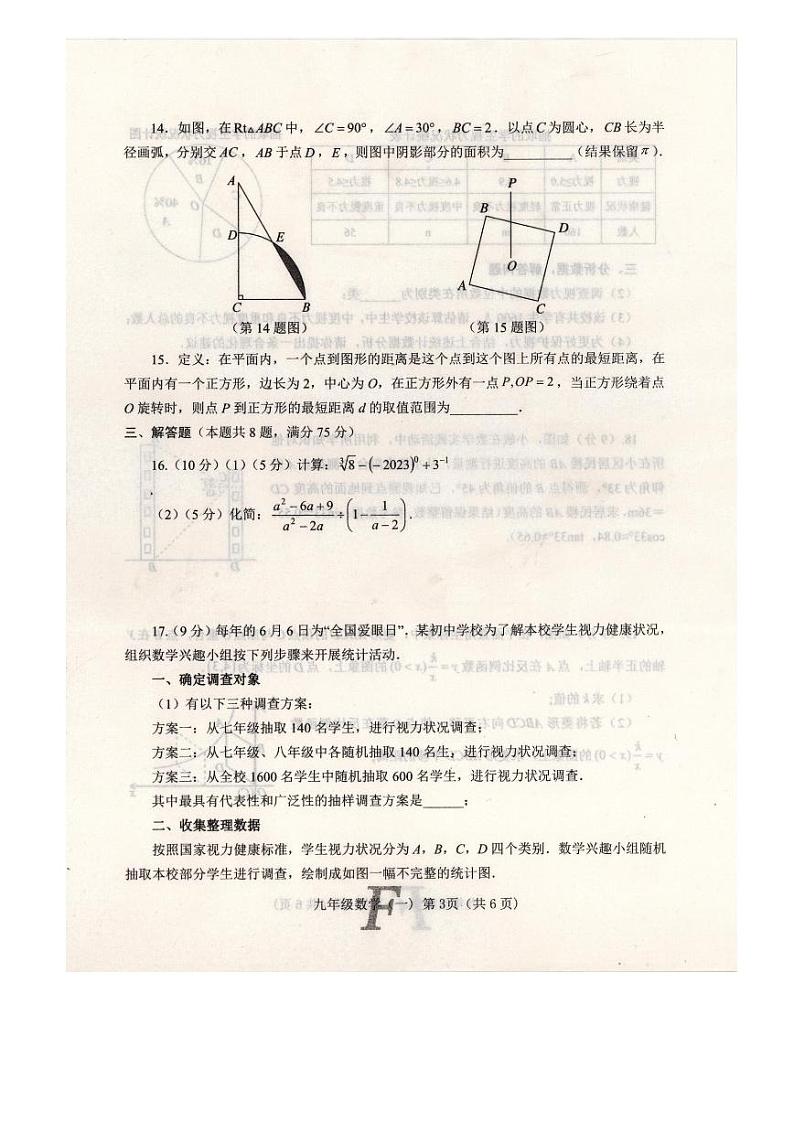 14. 如图,在Rt△ABC中,∠C=90°,∠A=30°,BC=2.以点C为圆心,CB长为半
径画弧,分别交AC,AB于点D,E,则图中阴影部分的面积为__________(结果保留π).
A
D
E
C
B
(第14题图)
P
B
D
O
A
C
(第15题图)
15. 定义:在平面内,一个点到图形的距离是这个点到这个图上所有点的最短距离,在
平面内有一个正方形,边长为2,中心为O,在正方形外有一点P,OP=2,当正方形绕着点
O旋转时,则点P到正方形的最短距离d的取值范围为__________.
三、解答题(本题共8题,满分75分)
16.(10分)(1)(5分)计算:∛8-(-2023)⁰+3⁻¹
(2)(5分)化简:(a²-6a+9)/(a²-2a)÷(1-1/(a-2)).
17.(9分)每年的6月6日为“全国爱眼日”.某初中学校为了解本校学生视力健康状况,
组织数学兴趣小组按下列步骤来开展统计活动.
一、确定调查对象
(1)有以下三种调查方案:
方案一:从七年级抽取140名学生,进行视力状况调查;
方案二:从七年级、八年级中各随机抽取140名生,进行视力状况调查;
方案三:从全校1600名学生中随机抽取600名学生,进行视力状况调查.
其中最具有代表性和广泛性的抽样调查方案是______;
二、收集整理数据
按照国家视力健康标准,学生视力状况分为A,B,C,D四个类别.数学兴趣小组随机
抽取本校部分学生进行调查,绘制成如图一幅不完整的统计图.
九年级数学(一) 第3页(共6页)
F